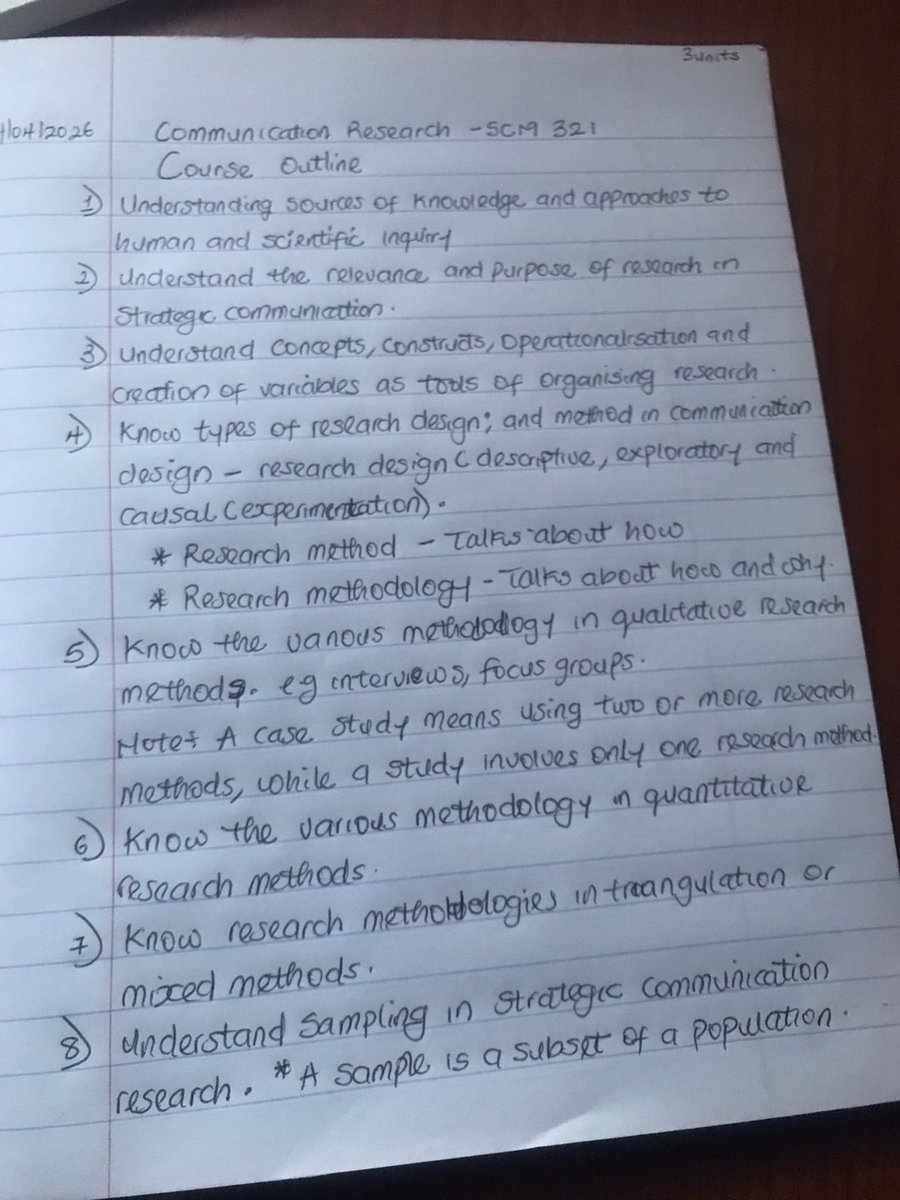 3units
/04/2026 Communication Research - SCM 321
Course Outline
1) Understanding sources of Knowledge and approaches to
human and scientific inquiry
2) Understand the relevance and purpose of research in
Strategic communication.
3) Understand concepts, constructs, operationalisation and
creation of variables as tools of organising research.
4) Know types of research design; and method in communication
design - research design ( descriptive, exploratory and
causal (experimentation).
* Research method - Talks about how
* Research methodology - Talks about how and why.
5) Know the various methodology in qualitative research
methods. eg interviews, focus groups.
Note: A case study means using two or more research
methods, while a study involves only one research method.
6) Know the various methodology in quantitative
research methods.
7) Know research methodologies in traangulation or
mixed methods.
8) Understand sampling in strategic communication
research. * A sample is a subset of a population.